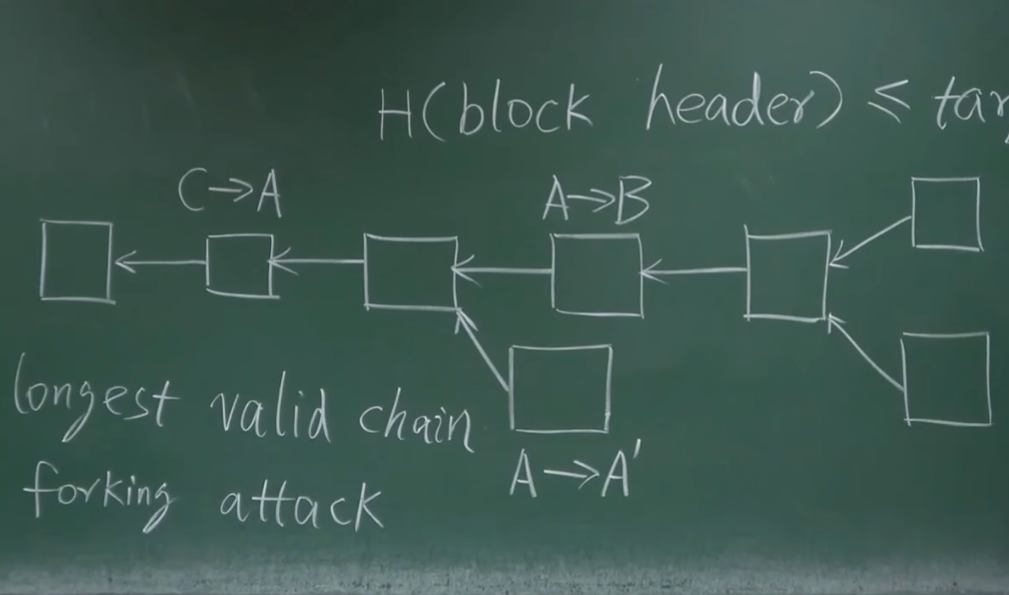 H(block header) ≤ tar
C→A
A→B
longest valid chain
A→A'
forking attack